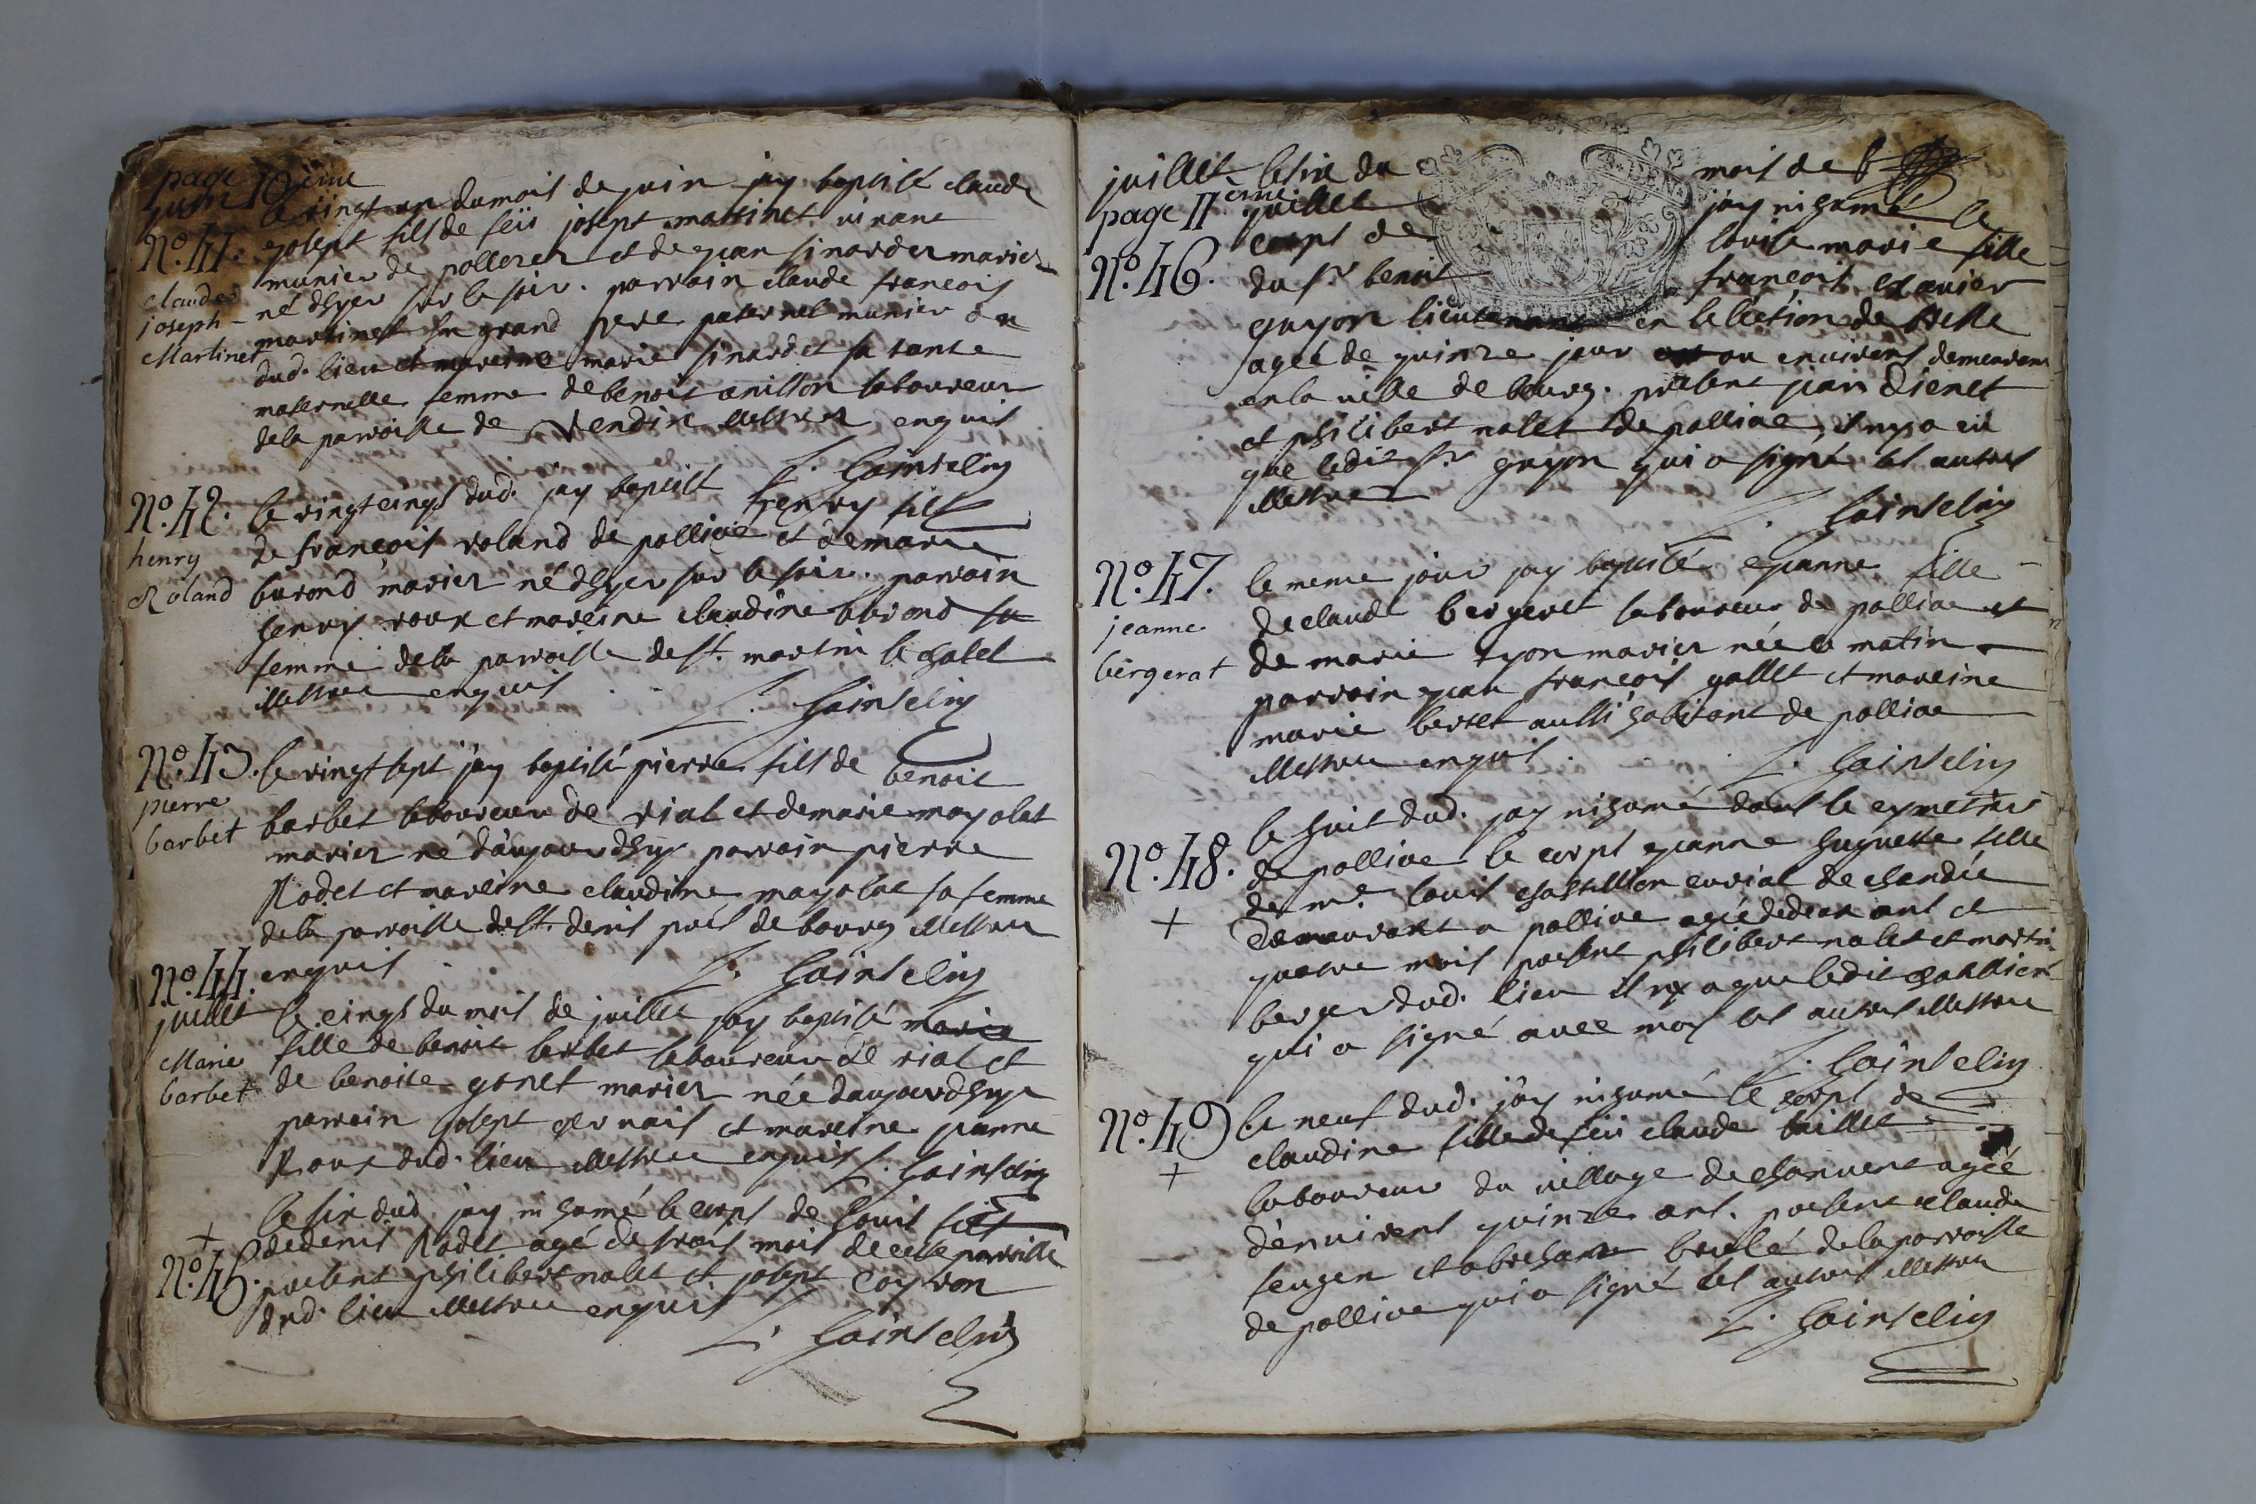 page 10eme
juin
le vingt un du mois de juin jay baptisé claude
No. 41. joseph fils de feü joseph martinet vivant
munier de et de jean sinardet mariez
claude né dhyer sur le soir. parrain claude françois
joseph martinet son grand pere paternel munier
Martinet dud. lieu et mareine marie sinardet sa tante
maternelle femme de benoit anisson laboureur
de la parroisse de Vendin illettrez enquis
L. Gointelin
No. 42. le vingt cinqs dud. jay baptisé henry fils
henry de françois roland de polliae et de marie
Roland burond mariez né dhyer sur le soir. parrain
henry roux et mareine claudine burond sa
femme de la parroisse de st. martin le chatel
illettrez enquis L. Gointelin
No. 43. le vingt sept jay baptisé pierre fils de benoit
pierre barbet laboureur de rial et de marie mayolet
barbet mariez né d'aujourdhuy parrain pierre
Rodet et mareine claudine mayolet sa femme
de la parroisse de st. denis pres de bourg illettrez
No. 44. enquis L. Gointelin
juillet le cinqs du mois de juillet jay baptisé marie
Marie fille de benoit barbet laboureur de rial et
barbet de benoite gonet mariez née daujourdhuy
parrain josept et mareine jeanne
Roux dud. lieu illettrez enquis L. Gointelin
+ le six dud. jay inhumé le corps de louis fils
No. 45. de denis Rodet agé de trois mois de cette parroisse
present philibert nalet et josept coyron
dud. lieu illettrez enquis
L. Gointelin
juillet le six du mois de
page 11eme juillet jay inhumé le
No. 46. corps de louise marie fille
du sr. benoit françois xavier
guyon lieutenant en lélection de Belle
agée de quinze jour ou environs demeurant
en la ville de bourg. present jean dienet
et philibert nalet de polliae, il ny a eü
que ledit sr. guyon qui a signé les autres
illettrez
L. Gointelin
No. 47. le meme jour jay baptisé jeanne fille
jeanne de claude bergeret laboureur de polliae et
bergerat de marie tyon mariez née le matin
parrain jean françois gallet et mareine
marie bertet aussi habitant de polliae
illettrez enquis. L. Gointelin
No. 48. le huit dud. jay inhumé dans le cymetiere
de polliae le corps jeanne huguette fille
+ de me. louis chastillon curial de chandée
demeurant a polliae agée de deux ans et
quatre mois present philibert nalet et martin
berger dud. lieu il ny a que ledit chastillon
qui a signé avec moy les autres illettrez
L. Gointelin
No. 49 le neuf dud. jay inhumé le corps de
+ claudine fille de feü claude
laboureur du village de chanvent agée
d'environs quinze ans. present claude
et abraham brulé de la parroisse
de polliae qui a signé les autres illettrez
L. Gointelin